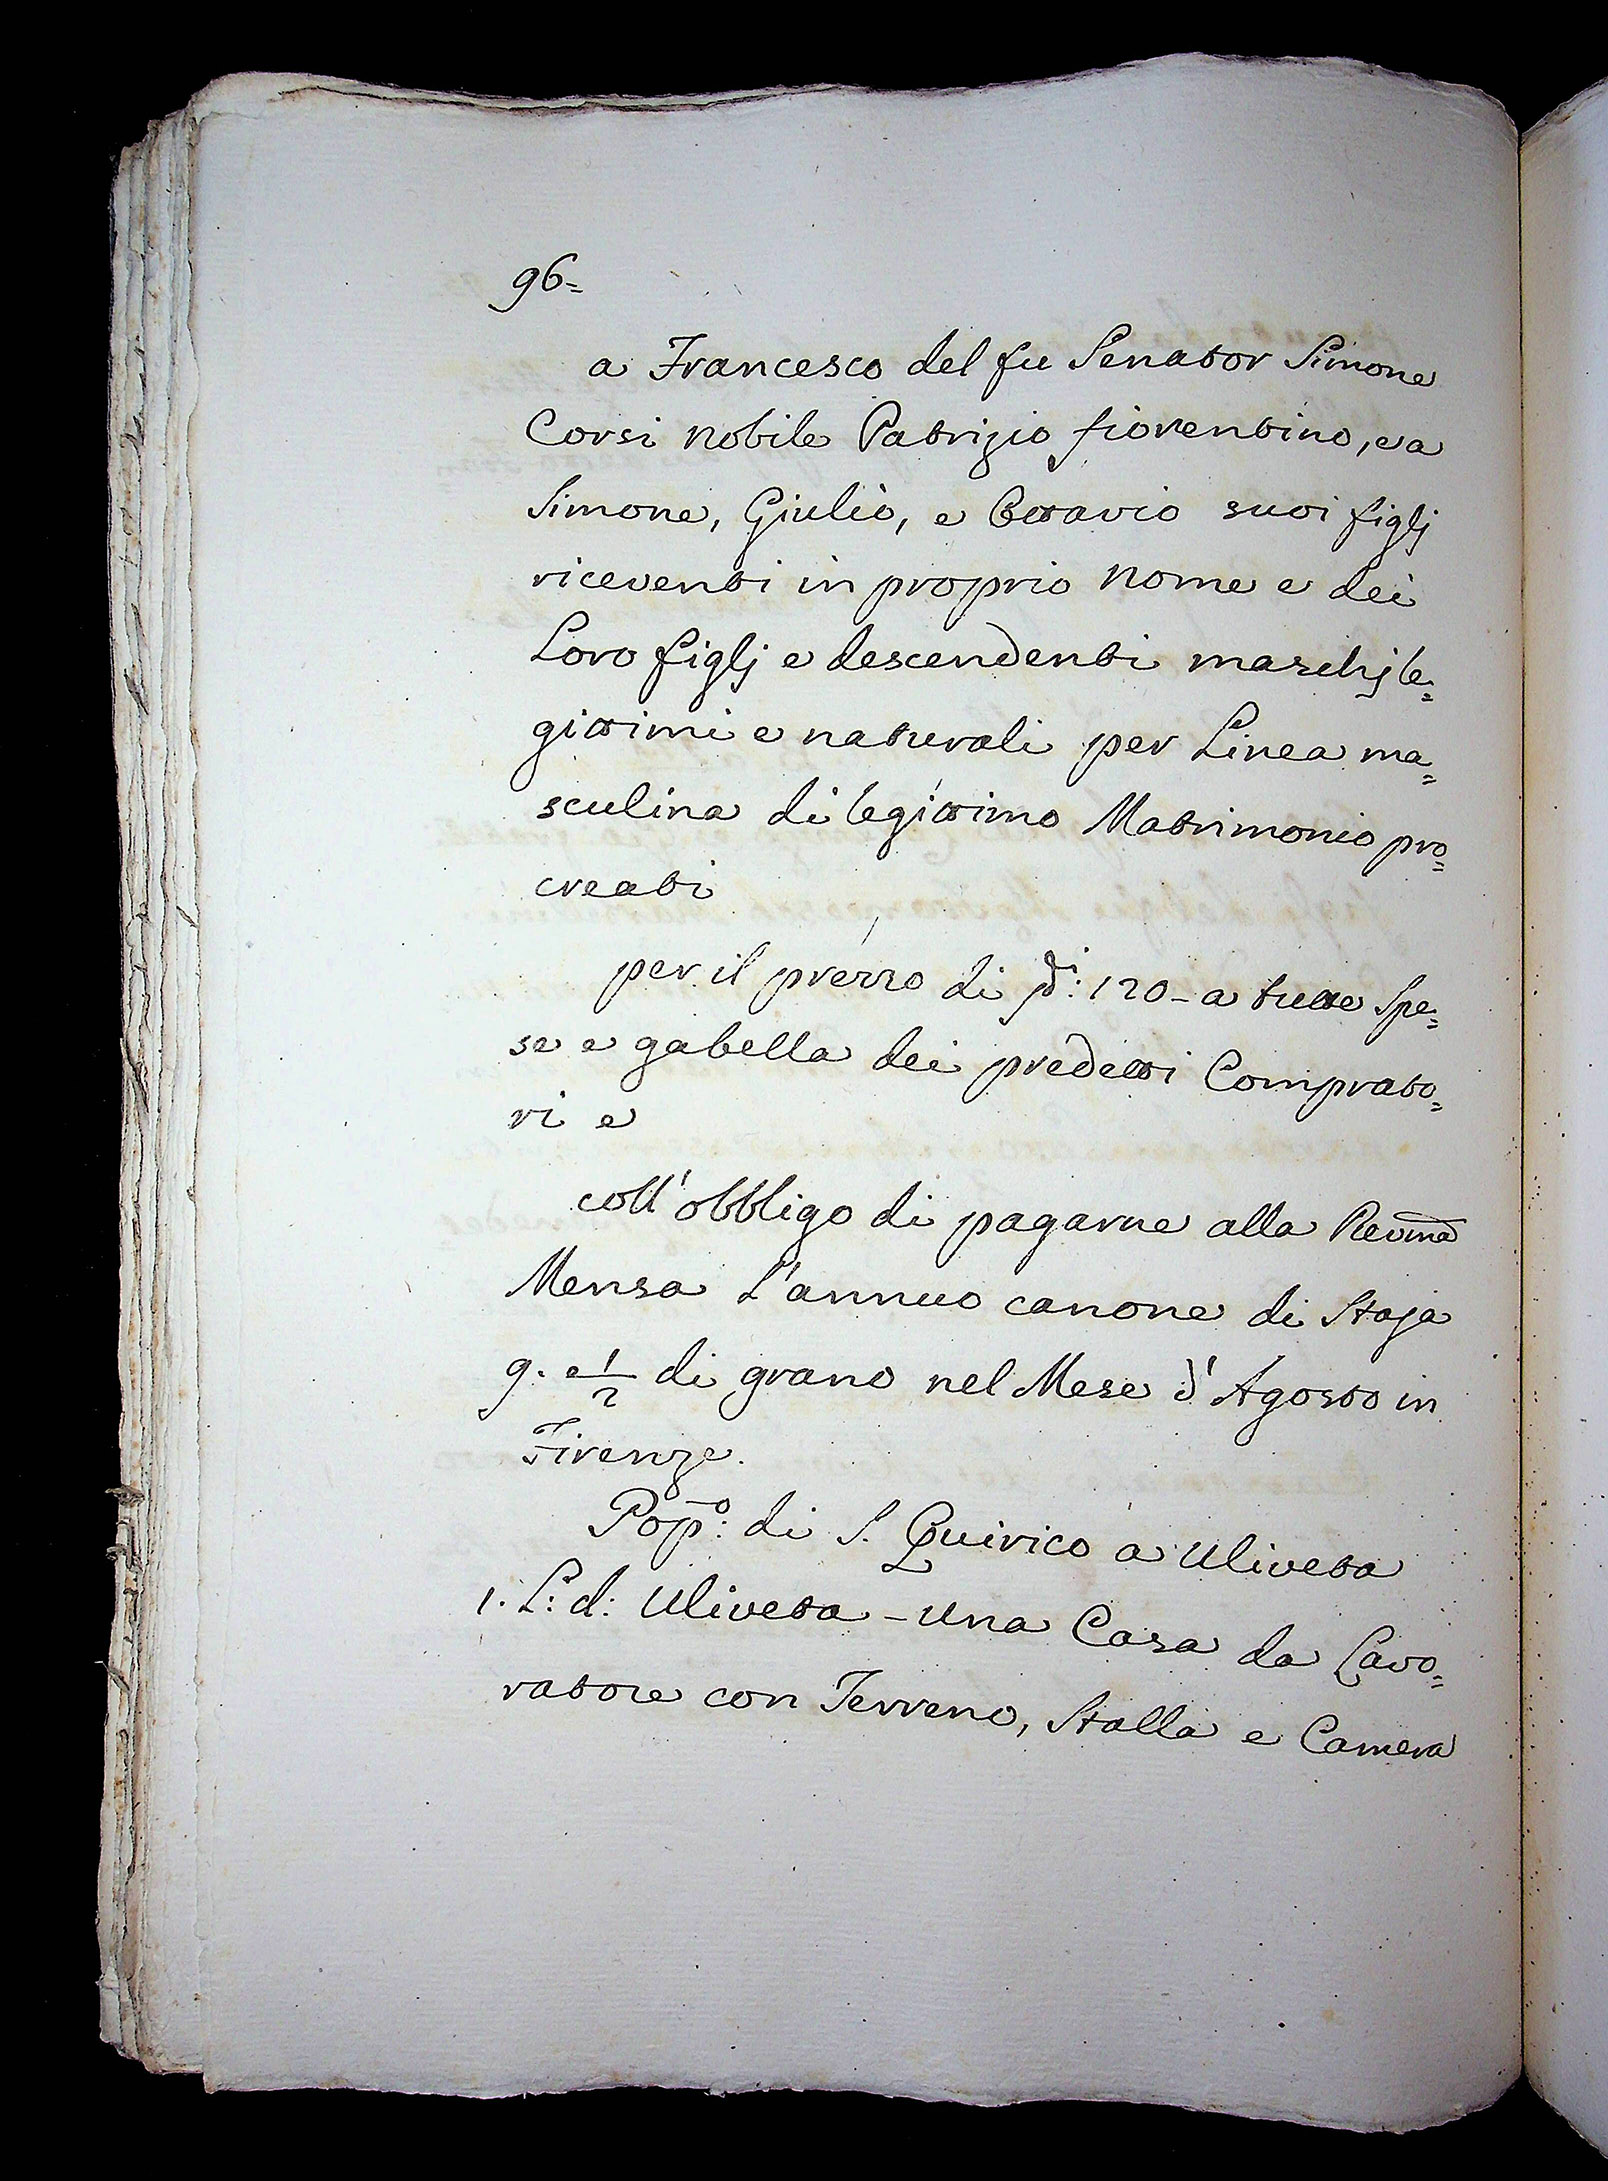 96=
a Francesco del fu Senator Simone
Corsi nobile Patrizio fiorentino, e a
Simone, Giulio, e Ottavio suoi figlj
riceventi in proprio nome e dei
Loro figlj e descendenti maschj le=
gittimi e naturali per Linea ma=
sculina di legittimo Matrimonio pro=
creati
per il prezzo di 120 - a tutte spe=
se e gabella dei predetti Comprato=
ri e
coll'obbligo di pagarne alla Revma
Mensa L'annuo canone di Staja
9. e 1/2 di grano nel Mese d'Agosto in
Firenze.
Popo: di S. Quirico a Uliveta
1. L: d: Uliveta - Una Casa da Lavo=
ratore con Terreno, Stalla e Camera